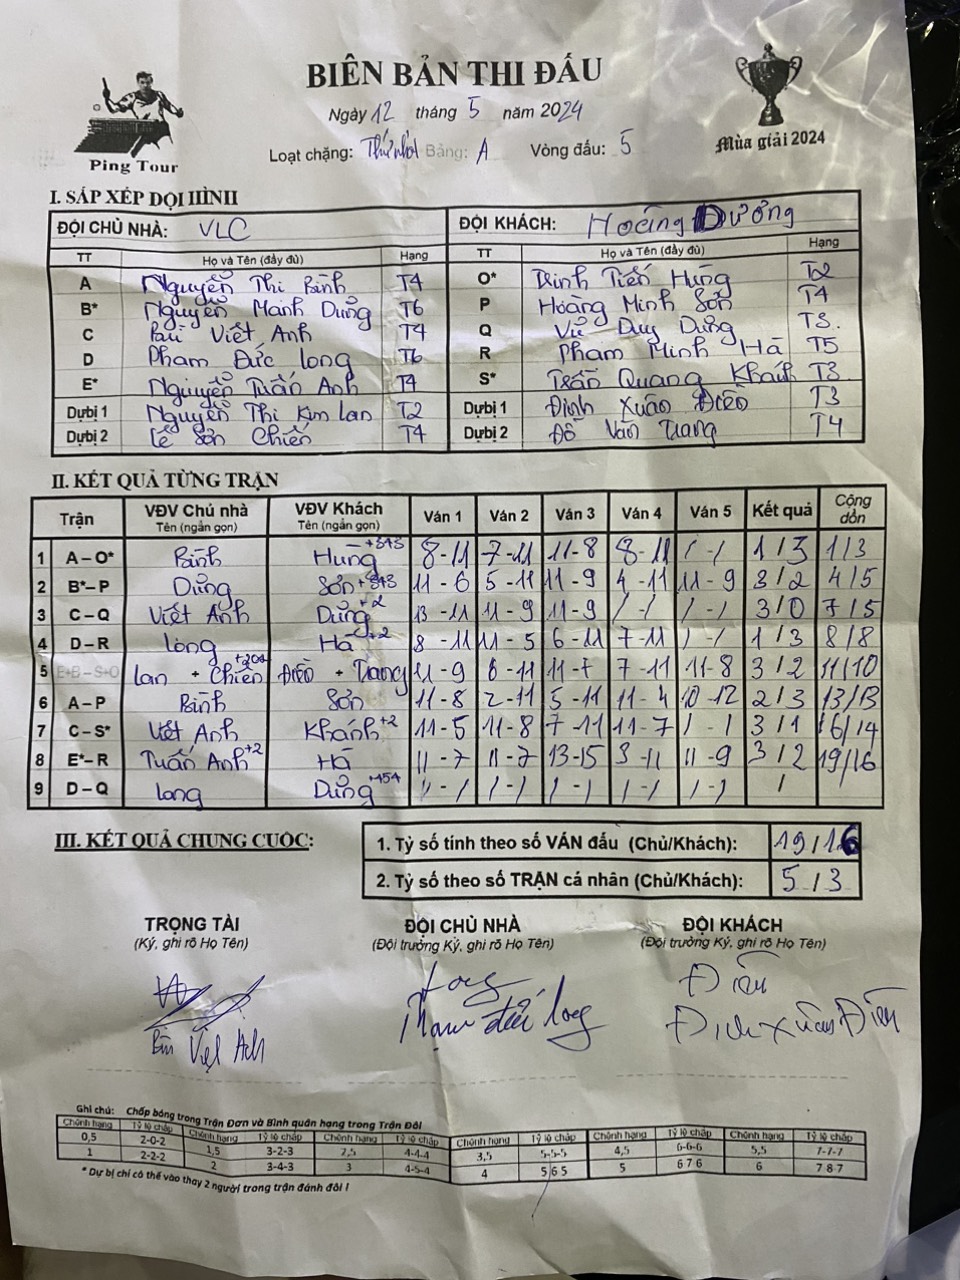 BIÊN BẢN THI ĐẤU
Ngày 12 tháng 5 năm 2024
Loạt chặng: Thứ nhất Bảng: A Vòng đấu: 5
Ping Tour
Mùa giải 2024
I. SẮP XẾP ĐỘI HÌNH
ĐỘI CHỦ NHÀ: VLC ĐỘI KHÁCH: Hoàng Dương
TT Họ và Tên (đầy đủ) Hạng TT Họ và Tên (đầy đủ) Hạng
A Nguyễn Thi Bình T4 O* Đinh Tiến Hùng T2
B* Nguyễn Mạnh Dũng T6 P Hoàng Minh Sơn T4
C Bùi Viết Anh T4 Q Vũ Duy Dũng T3.
D Phạm Đức Long T6 R Phạm Minh Hà T5
E* Nguyễn Tuấn Anh T4 S* Trần Quang Khánh T3
Dự bị 1 Nguyễn Thi Kim Lan T2 Dự bị 1 Đinh Xuân Điều T3
Dự bị 2 Lê Sơn Chiến T4 Dự bị 2 Đỗ Văn Trang T4
II. KẾT QUẢ TỪNG TRẬN
Trận VĐV Chủ nhà Tên (ngắn gọn) VĐV Khách Tên (ngắn gọn) Ván 1 Ván 2 Ván 3 Ván 4 Ván 5 Kết quả Cộng dồn
1 A – O* Bình Hùng +343 8-11 7-11 11-8 8-11 /-/ 1/3 1/3
2 B* – P Dũng Sơn +343 11-6 5-11 11-9 4-11 11-9 3/2 4/5
3 C – Q Viết Anh Dũng +2 13-11 11-9 11-9 /-/ /-/ 3/0 7/5
4 D – R Long Hà +2 8-11 11-5 6-11 7-11 /-/ 1/3 8/8
5 E+B – S+O Lan + Chiến +202 Điều + Trang 11-9 6-11 11-7 7-11 11-8 3/2 11/10
6 A – P Bình Sơn 11-8 2-11 5-11 11-4 10-12 2/3 13/13
7 C – S* Viết Anh Khánh +2 11-5 11-8 7-11 11-7 /-/ 3/1 16/14
8 E* – R Tuấn Anh +2 Hà 11-7 11-7 13-15 3-11 11-9 3/2 19/16
9 D – Q Long Dũng +454 /-/ /-/ /-/ /-/ /-/ /
III. KẾT QUẢ CHUNG CUỘC:
1. Tỷ số tính theo số VÁN đấu (Chủ/Khách): 19/16
2. Tỷ số theo số TRẬN cá nhân (Chủ/Khách): 5/3
TRỌNG TÀI ĐỘI CHỦ NHÀ ĐỘI KHÁCH
(Ký, ghi rõ Họ Tên) (Đội trưởng Ký, ghi rõ Họ Tên) (Đội trưởng Ký, ghi rõ Họ Tên)
Long Điều
Bùi Việt Anh Phạm Đức Long Đinh Xuân Điều
Ghi chú: Chấp bóng trong Trận Đơn và Bình quân hạng trong Trận Đôi
Chênh hạng Tỷ lệ chấp Chênh hạng Tỷ lệ chấp Chênh hạng Tỷ lệ chấp Chênh hạng Tỷ lệ chấp Chênh hạng Tỷ lệ chấp Chênh hạng Tỷ lệ chấp
0,5 2-0-2 1,5 3-2-3 2,5 4-4-4 3,5 5-5-5 4,5 6-6-6 5,5 7-7-7
1 2-2-2 2 3-4-3 3 4-5-4 4 5 6 5 5 6 7 6 6 7 8 7
* Dự bị chỉ có thể vào thay 2 người trong trận đánh đôi !